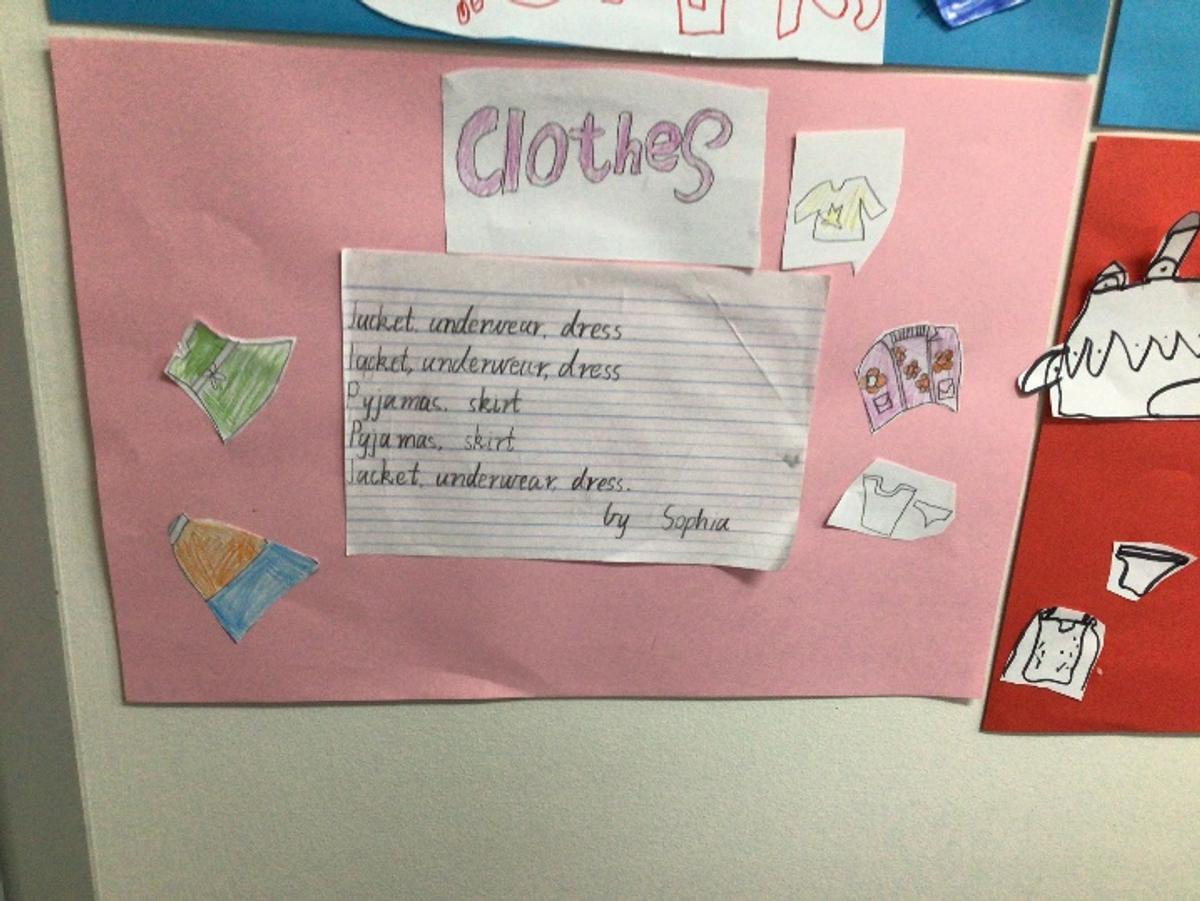 Clothes
Jacket, underwear, dress
Jacket, underwear, dress
Pyjamas, skirt
Pyjamas, skirt
Jacket, underwear, dress.
by Sophia